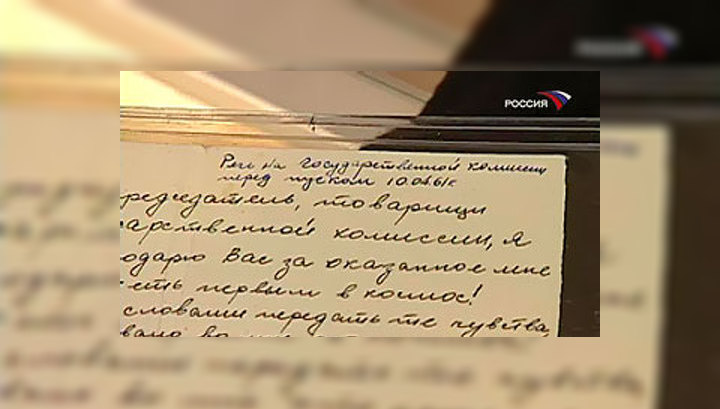 РОССИЯ
Речь на Государственной комиссии
перед пуском 10.04.61г.
редседатель, товарищи
арственной комиссии, я
одарю Вас за оказанное мне
сть первым в космос!
словами передать те чувства,